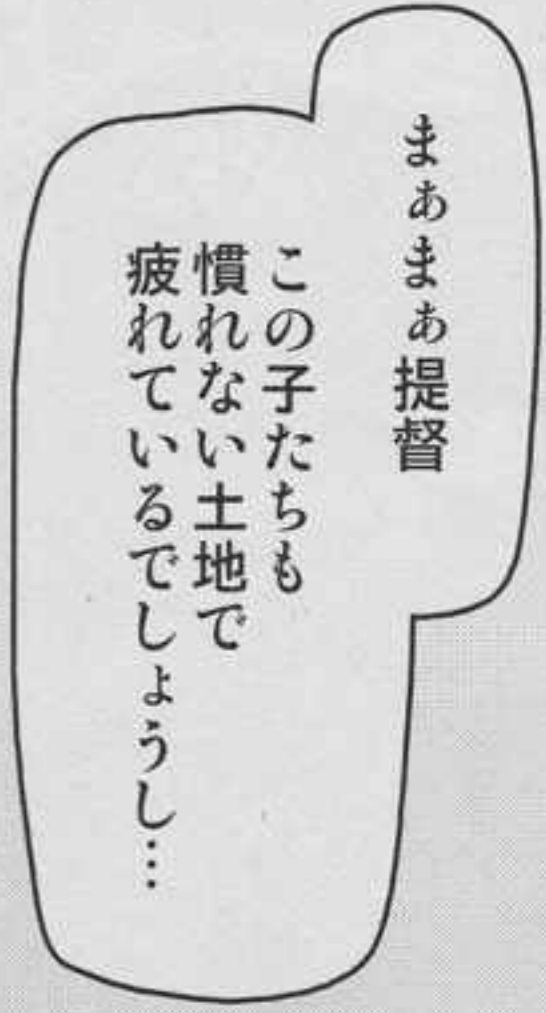 まぁまぁ提督
この子たちも
慣れない土地で
疲れているでしょうし…